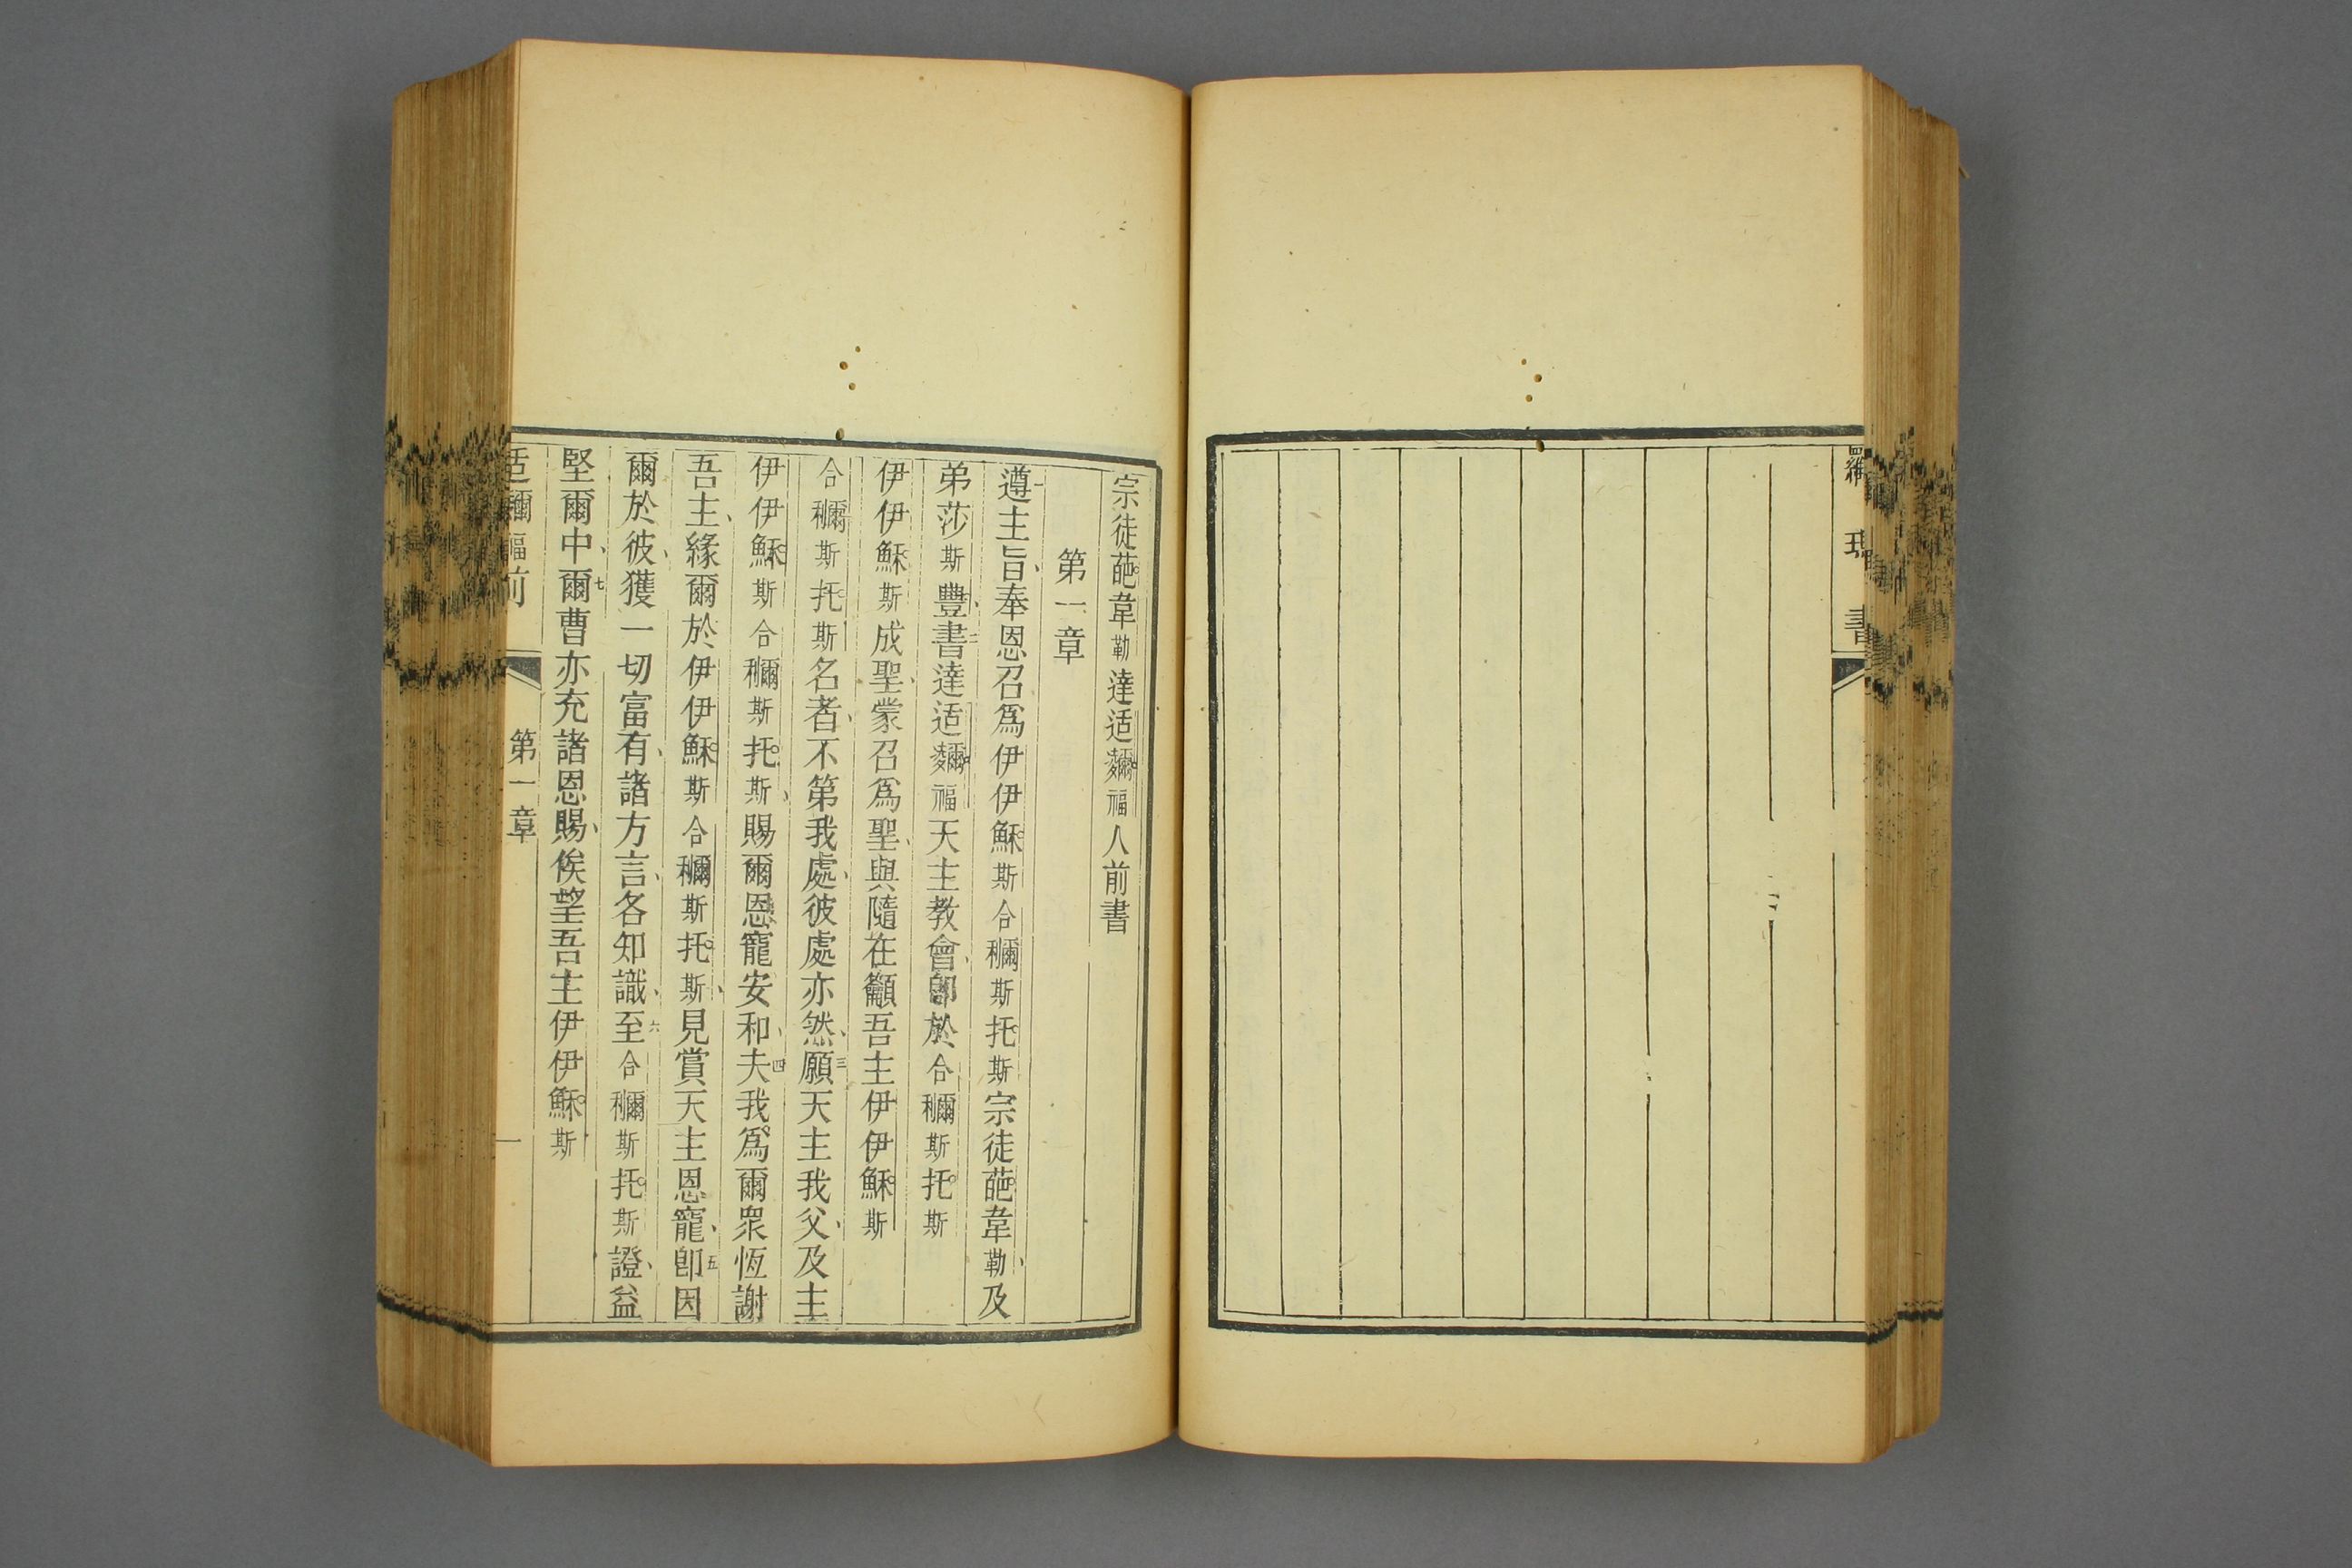 羅瑪書
宗徒葩韋勒達适𪎒福人前書
第一章
一遵主旨奉恩召爲伊伊穌斯合穪斯托斯宗徒葩韋勒及
弟莎斯豐二書達适𪎒福天主教會卽於合穪斯托斯
伊伊穌斯成聖蒙召爲聖與隨在籲吾主伊伊穌斯
合穪斯托斯名者不第我處彼處亦然三願天主我父及主
伊伊穌斯合穪斯托斯賜爾恩寵安和四夫我爲爾眾恆謝
吾主緣爾於伊伊穌斯合穪斯托斯見賞天主恩寵五卽因
爾於彼獲一切富有諸方言各知識六至合穪斯托斯證益
堅爾中七爾曹亦充諸恩賜俟望吾主伊伊穌斯
前 第一章 一